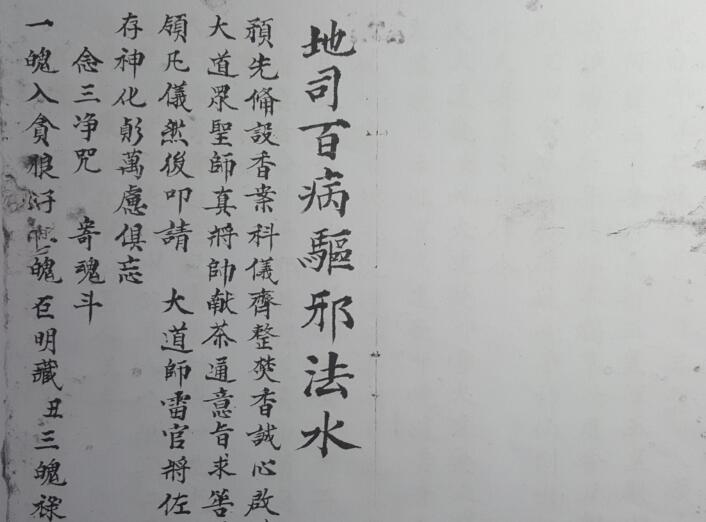 地司百病驅邪法水
預先俻設香案科儀齊整焚香誠心啟
大道眾聖師真將帥献茶通意旨求善
領凡儀然後叩請 大道師雷官將佐
存神化彰萬慮俱忘
念三净咒 寄魂斗
一魄入貪狼 魄巨明藏丑三魄祿